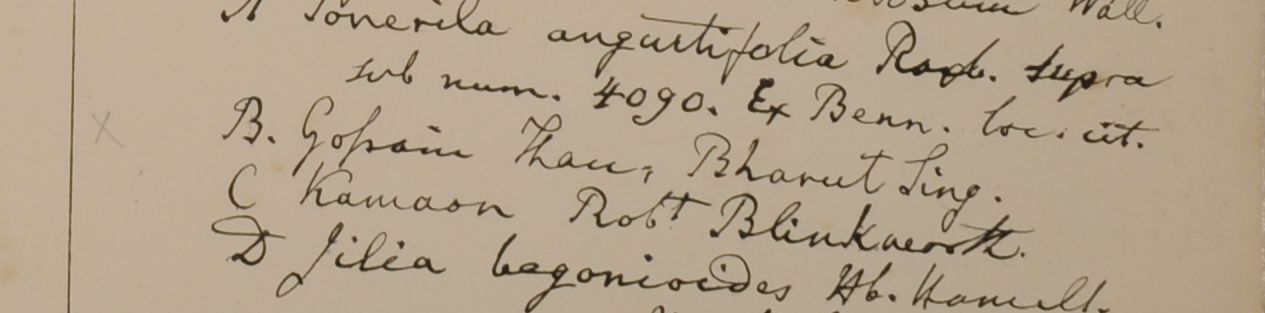 Wall.
A Sonerila angustifolia Roxb. supra
sub num. 4090. Ex Benn. loc. cit.
B. Goſsain Than, Bharut Sing.
C Kamaon Robt Blinkworth.
D Jilia begonioides Hb. Hamilt.